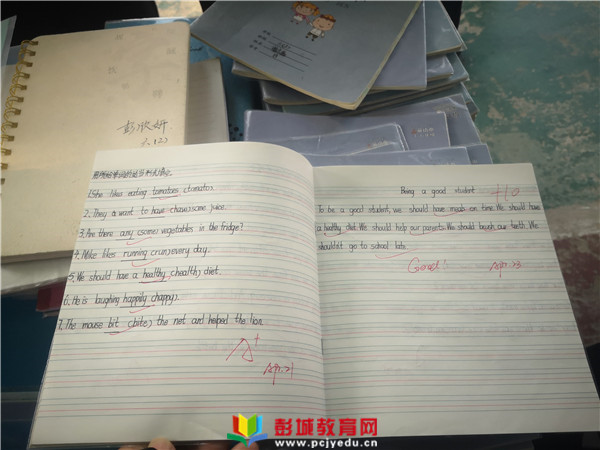 彭欣妍
六(2)
用所给单词的适当形式填空
1.She likes eating tomatoes (tomato).
2.They want to have (have) some juice.
3.Are there any (some) vegetables in the fridge?
4.Mike likes running (run) every day.
5.We should have a healthy (health) diet.
6.He is laughing happily (happy).
7.The mouse bit (bite) the net and helped the lion.
A+
Ap.21
Being a good student
+10
To be a good student, we should have meals on time. We should have
a healthy diet. We should help our parents. We should brush our teeth. We
shouldn't go to school late.
Good!
Ap.23
彭城教育网
www.pcjyedu.cn